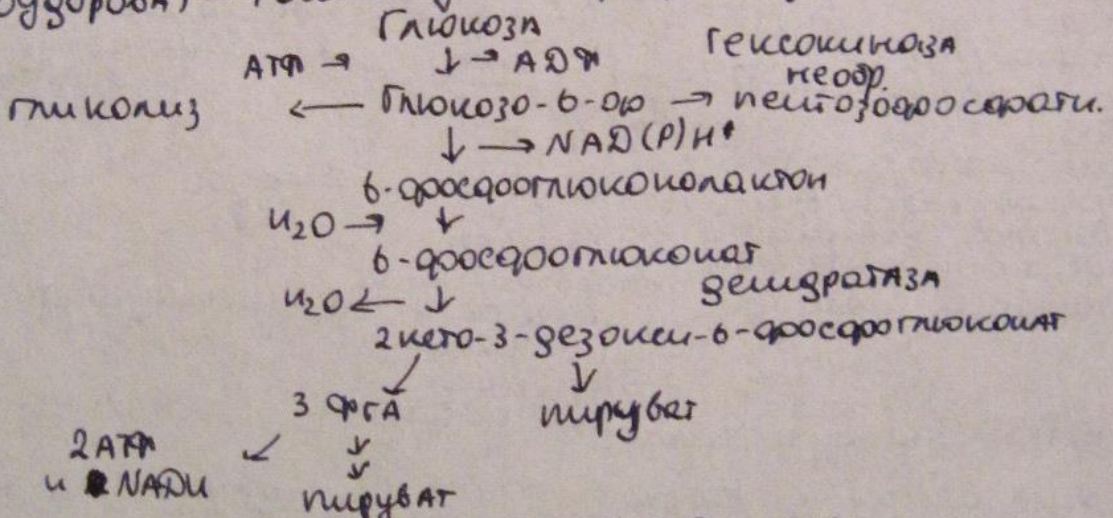 Глюкоза
АТФ → ↓ → АДФ Гексокиназа
необр.
гликолиз ← Глюкозо-6-ф → пентозофосфатн.
↓ → NAD(P)H⁺
6-фосфоглюконолактон
H₂O → ↓
6-фосфоглюконат
H₂O ← ↓ дегидратаза
2 кето-3-дезокси-6-фосфоглюконат
↙ ↓
3 ФГА пируват
2АТФ ↙ ↓
и NADH ↓
пируват